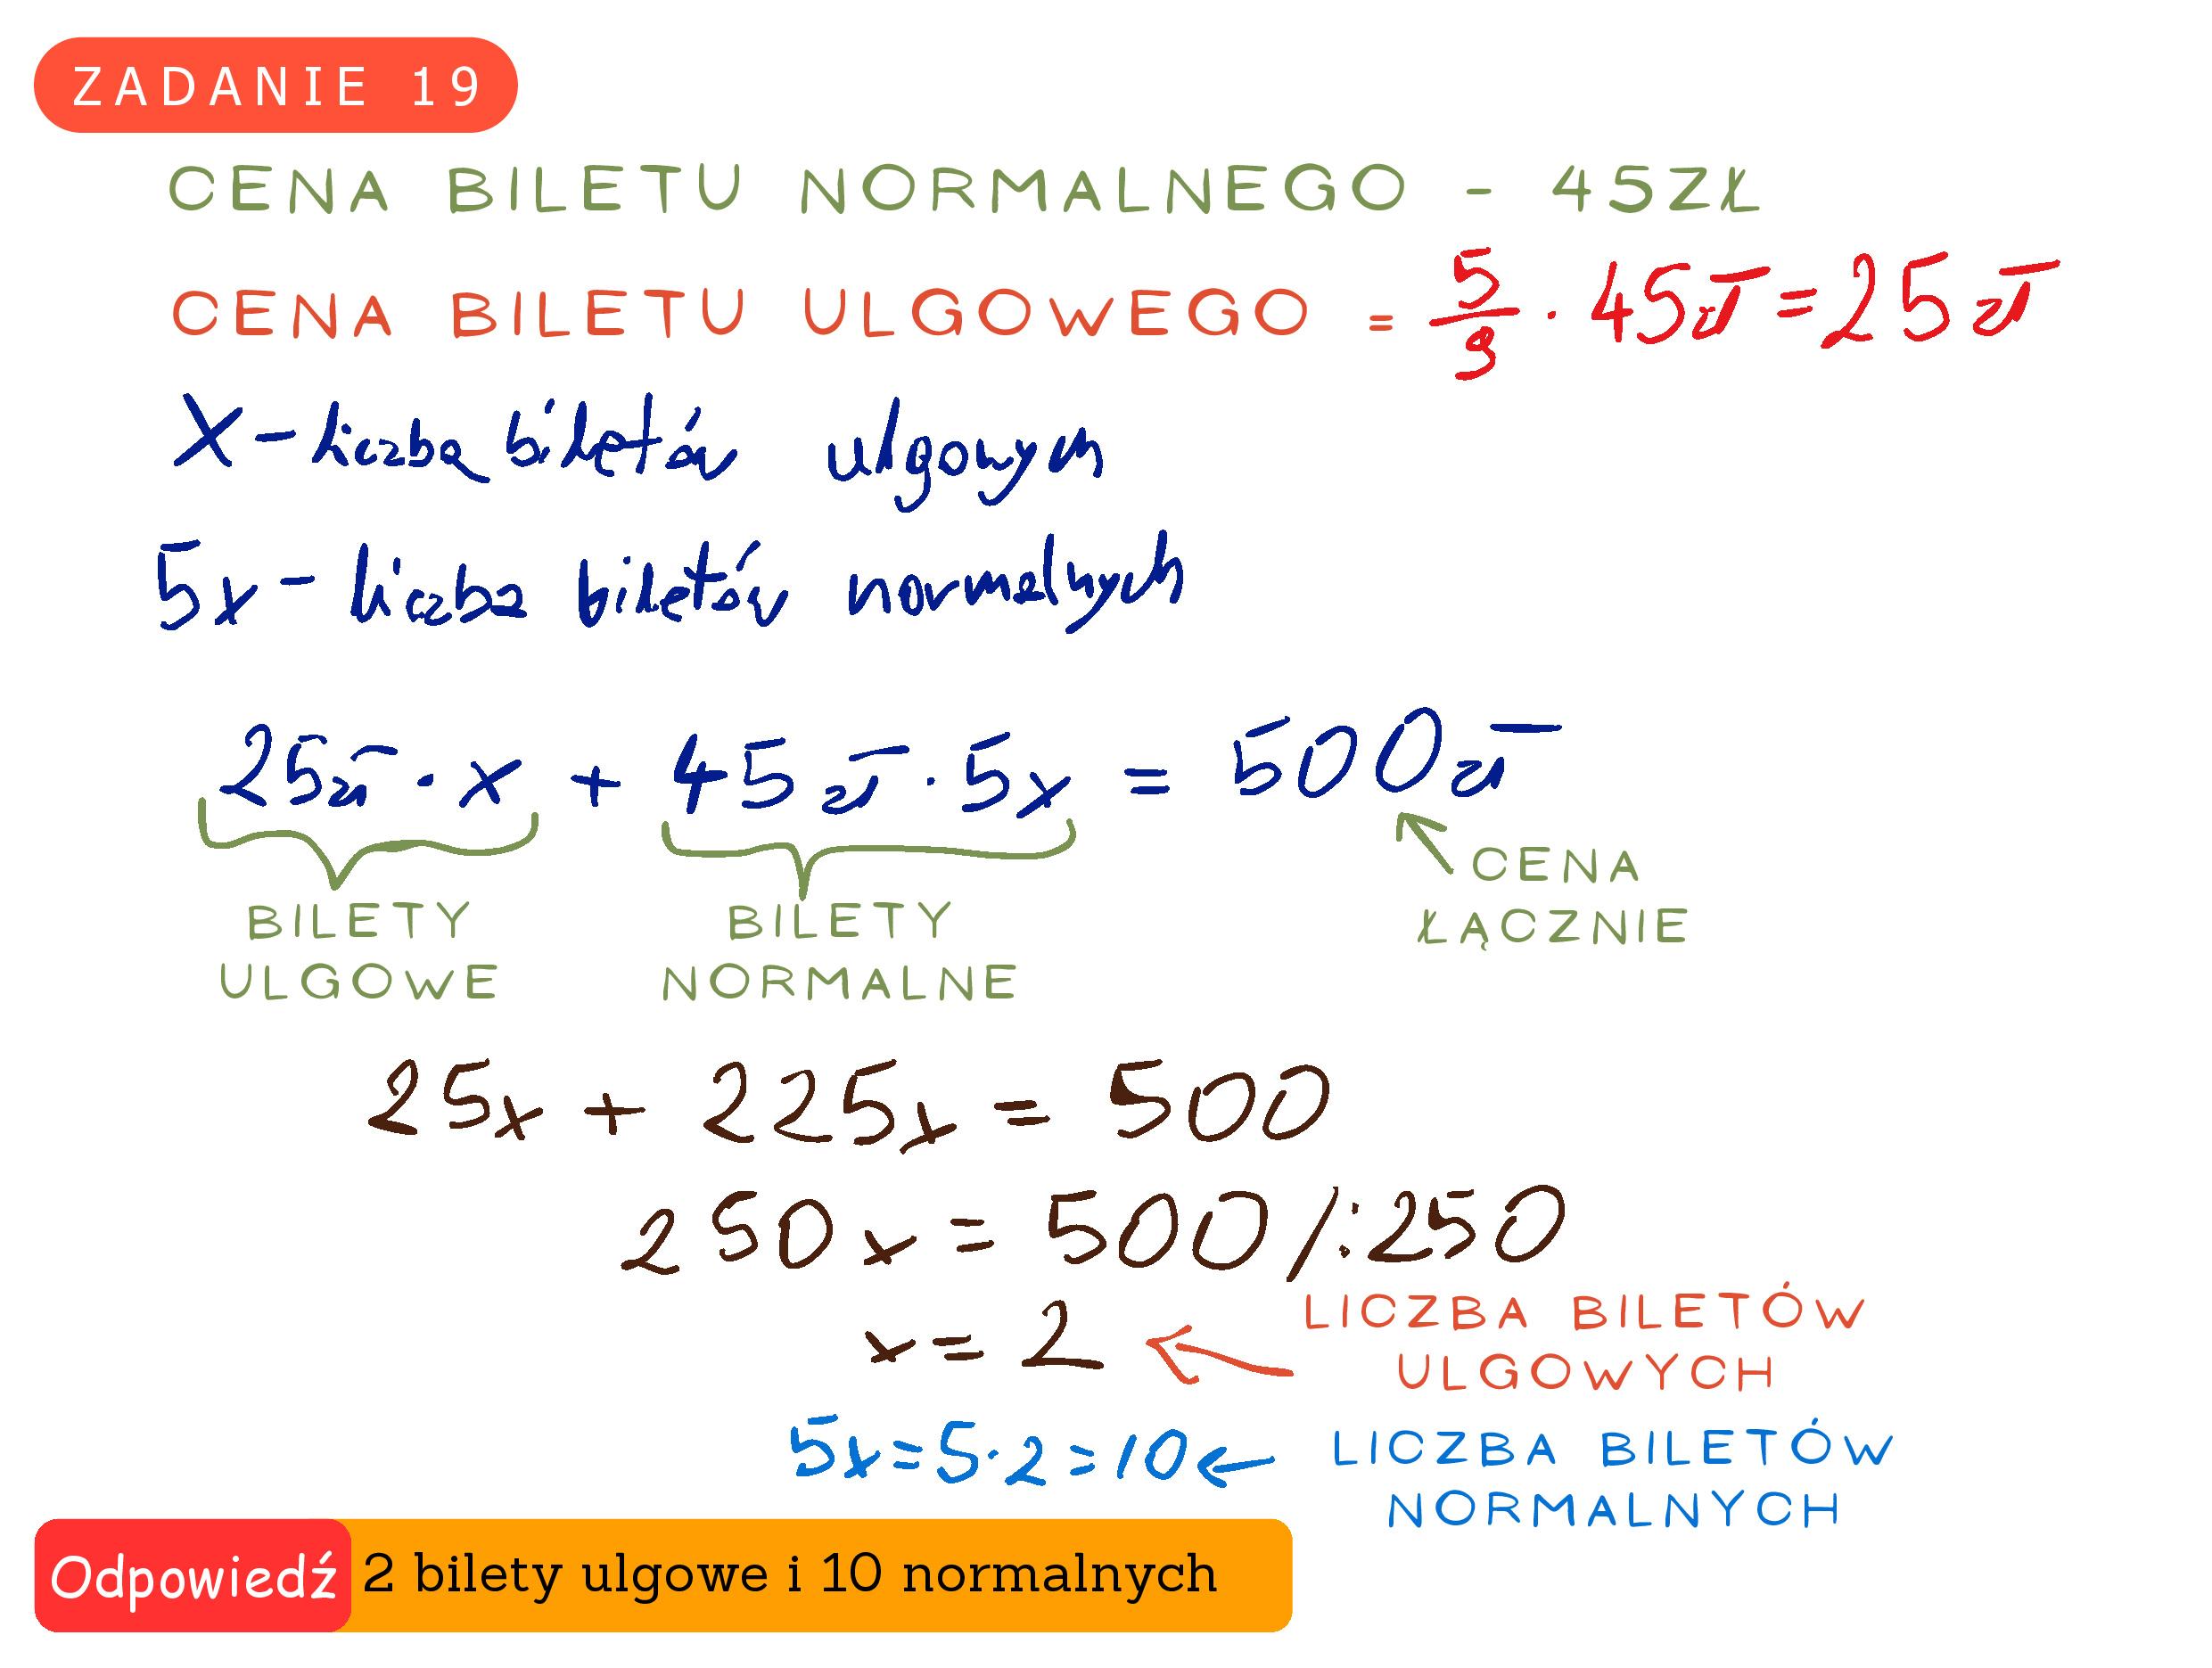 ZADANIE 19
CENA BILETU NORMALNEGO - 45ZŁ
CENA BILETU ULGOWEGO = 5/9 · 45zł = 25 zł
X - liczba biletów ulgowych
5x - liczba biletów normalnych
25zł · x + 45 zł · 5x = 500zł
BILETY ULGOWE
BILETY NORMALNE
CENA ŁĄCZNIE
25x + 225x = 500
250x = 500 /:250
x = 2
LICZBA BILETÓW
ULGOWYCH
5x = 5·2 = 10
LICZBA BILETÓW
NORMALNYCH
Odpowiedź 2 bilety ulgowe i 10 normalnych